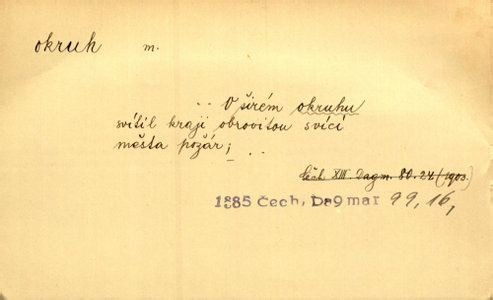 okruh m.
.. V širém okruhu
svítil kraji obrovitou svící
města požár; ..
Čech XIII. Dagm. 80.24 (1903)
1885 Čech, Dagmar 99, 16,